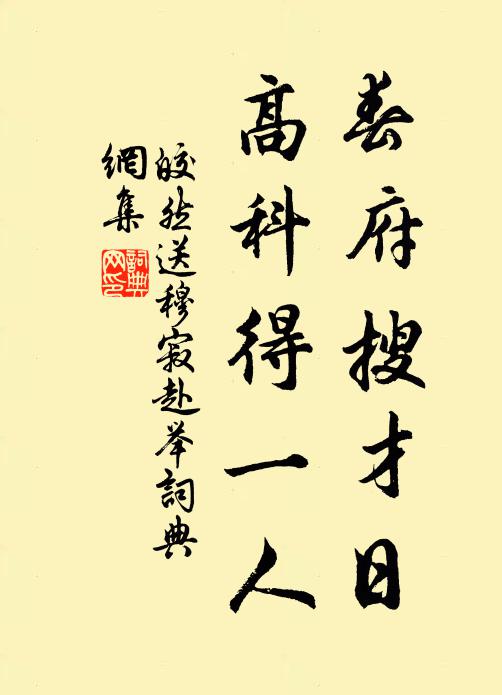 春府搜才日
高科得一人
皎然送穆寂赴举詞典
網集
詞典
网印